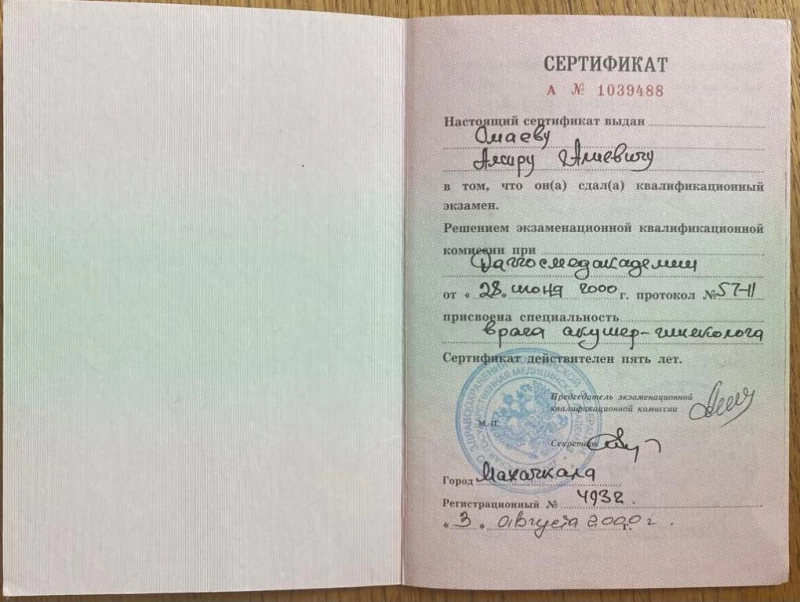 СЕРТИФИКАТ
А № 1039488
Настоящий сертификат выдан
Омаеву
Амиру Алиевичу
в том, что он(а) сдал(а) квалификационный
экзамен.
Решением экзаменационной квалификационной
комиссии при
Даггосмедакадемии
от « 28 » июня 2000 г. протокол № 57-11
присвоена специальность
врача акушер-гинеколога
Сертификат действителен пять лет.
Председатель экзаменационной
квалификационной комиссии
М. П.
Секретарь
Город Махачкала
Регистрационный № 4932.
« 3 » августа 2000 г.